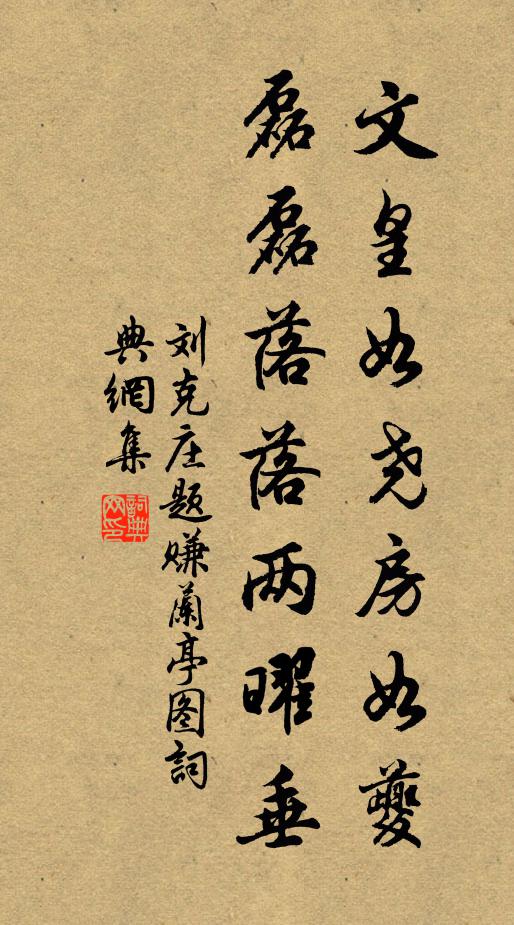 文皇如尧房如夔
磊磊落落两曜垂
刘克庄题赚蘭亭图詞
典網集
詞典网印